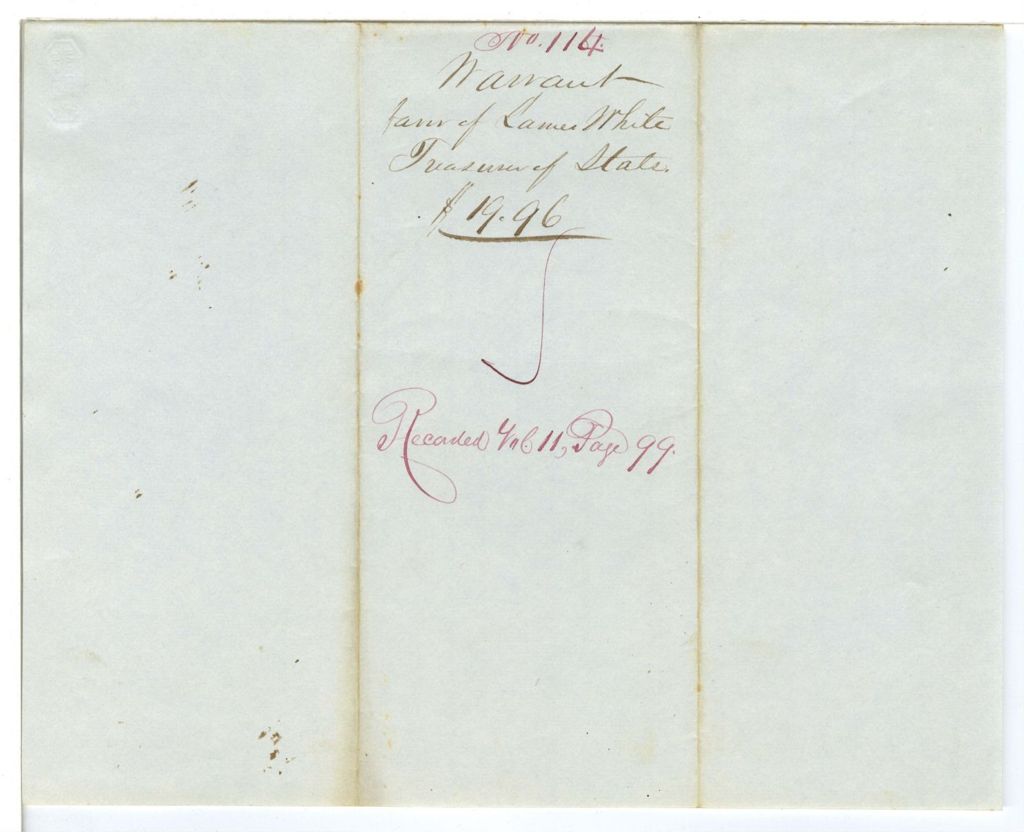 No. 114.
Warrant
favr of James White
Treasurer of State.
$19.96
Recorded Vol. 11, Page 99.